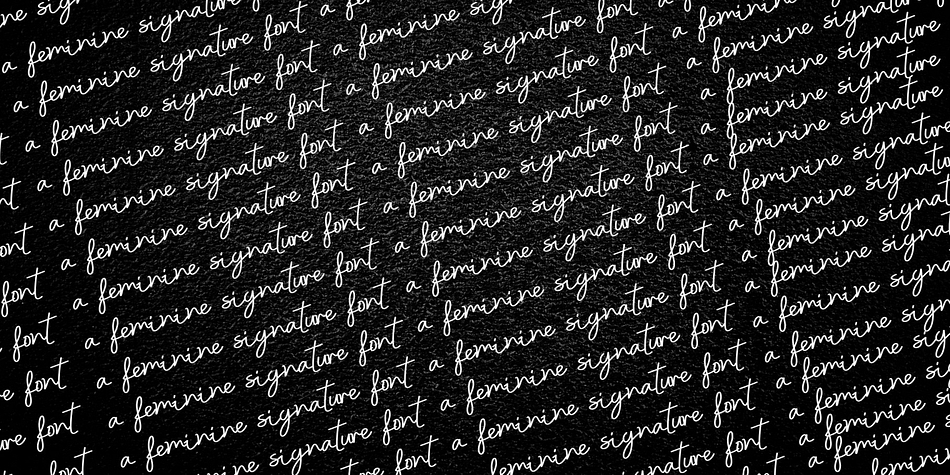 feminine
a feminine signature font a
a feminine signature font a feminine signature
a feminine signature font a feminine signature font a feminine
a feminine signature font a feminine signature font a feminine signature
a feminine signature font a feminine signature font a feminine signature
font a feminine signature font a feminine signature font a feminine signature
font a feminine signature font a feminine signature font a feminine signature
font a feminine signature font a feminine signature font a feminine
font a feminine signature font a feminine signature font a feminine
font a feminine signature font a feminine signature font a feminine
a feminine signature font a feminine signature font a feminine
signature font a feminine signature font a feminine
feminine signature font a feminine